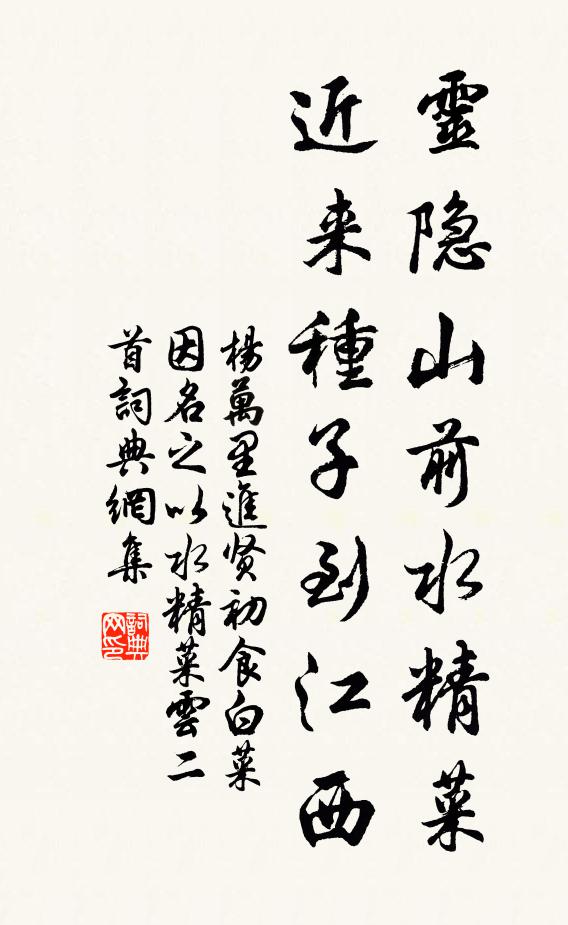 靈隐山前水精菜
近来種子到江西
楊萬里進贤初食白菜
因名之以水精菜雲二
首詞典網集
詞典网印